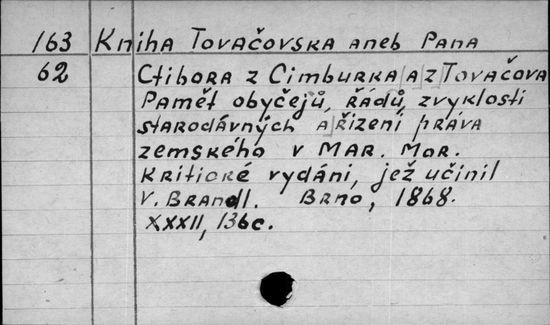 163 Kniha Tovačovska aneb Pana
62 Ctibora z Cimburka a z Tovačova
Pamět obyčejů, řádů, zvyklostí
starodávných a řizení práva
zemského v Mar. Mor.
Kritické vydáni, jež učinil
V. Brandl. Brno, 1868.
XXXII, 136c.